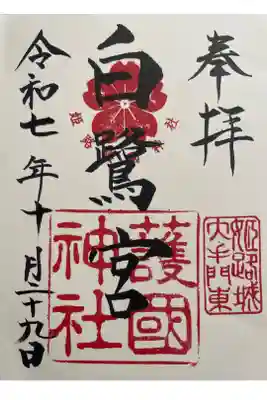 奉拝
白鷺宮
護國
神社
姫路城
大手門東
令和七年十月二十九日